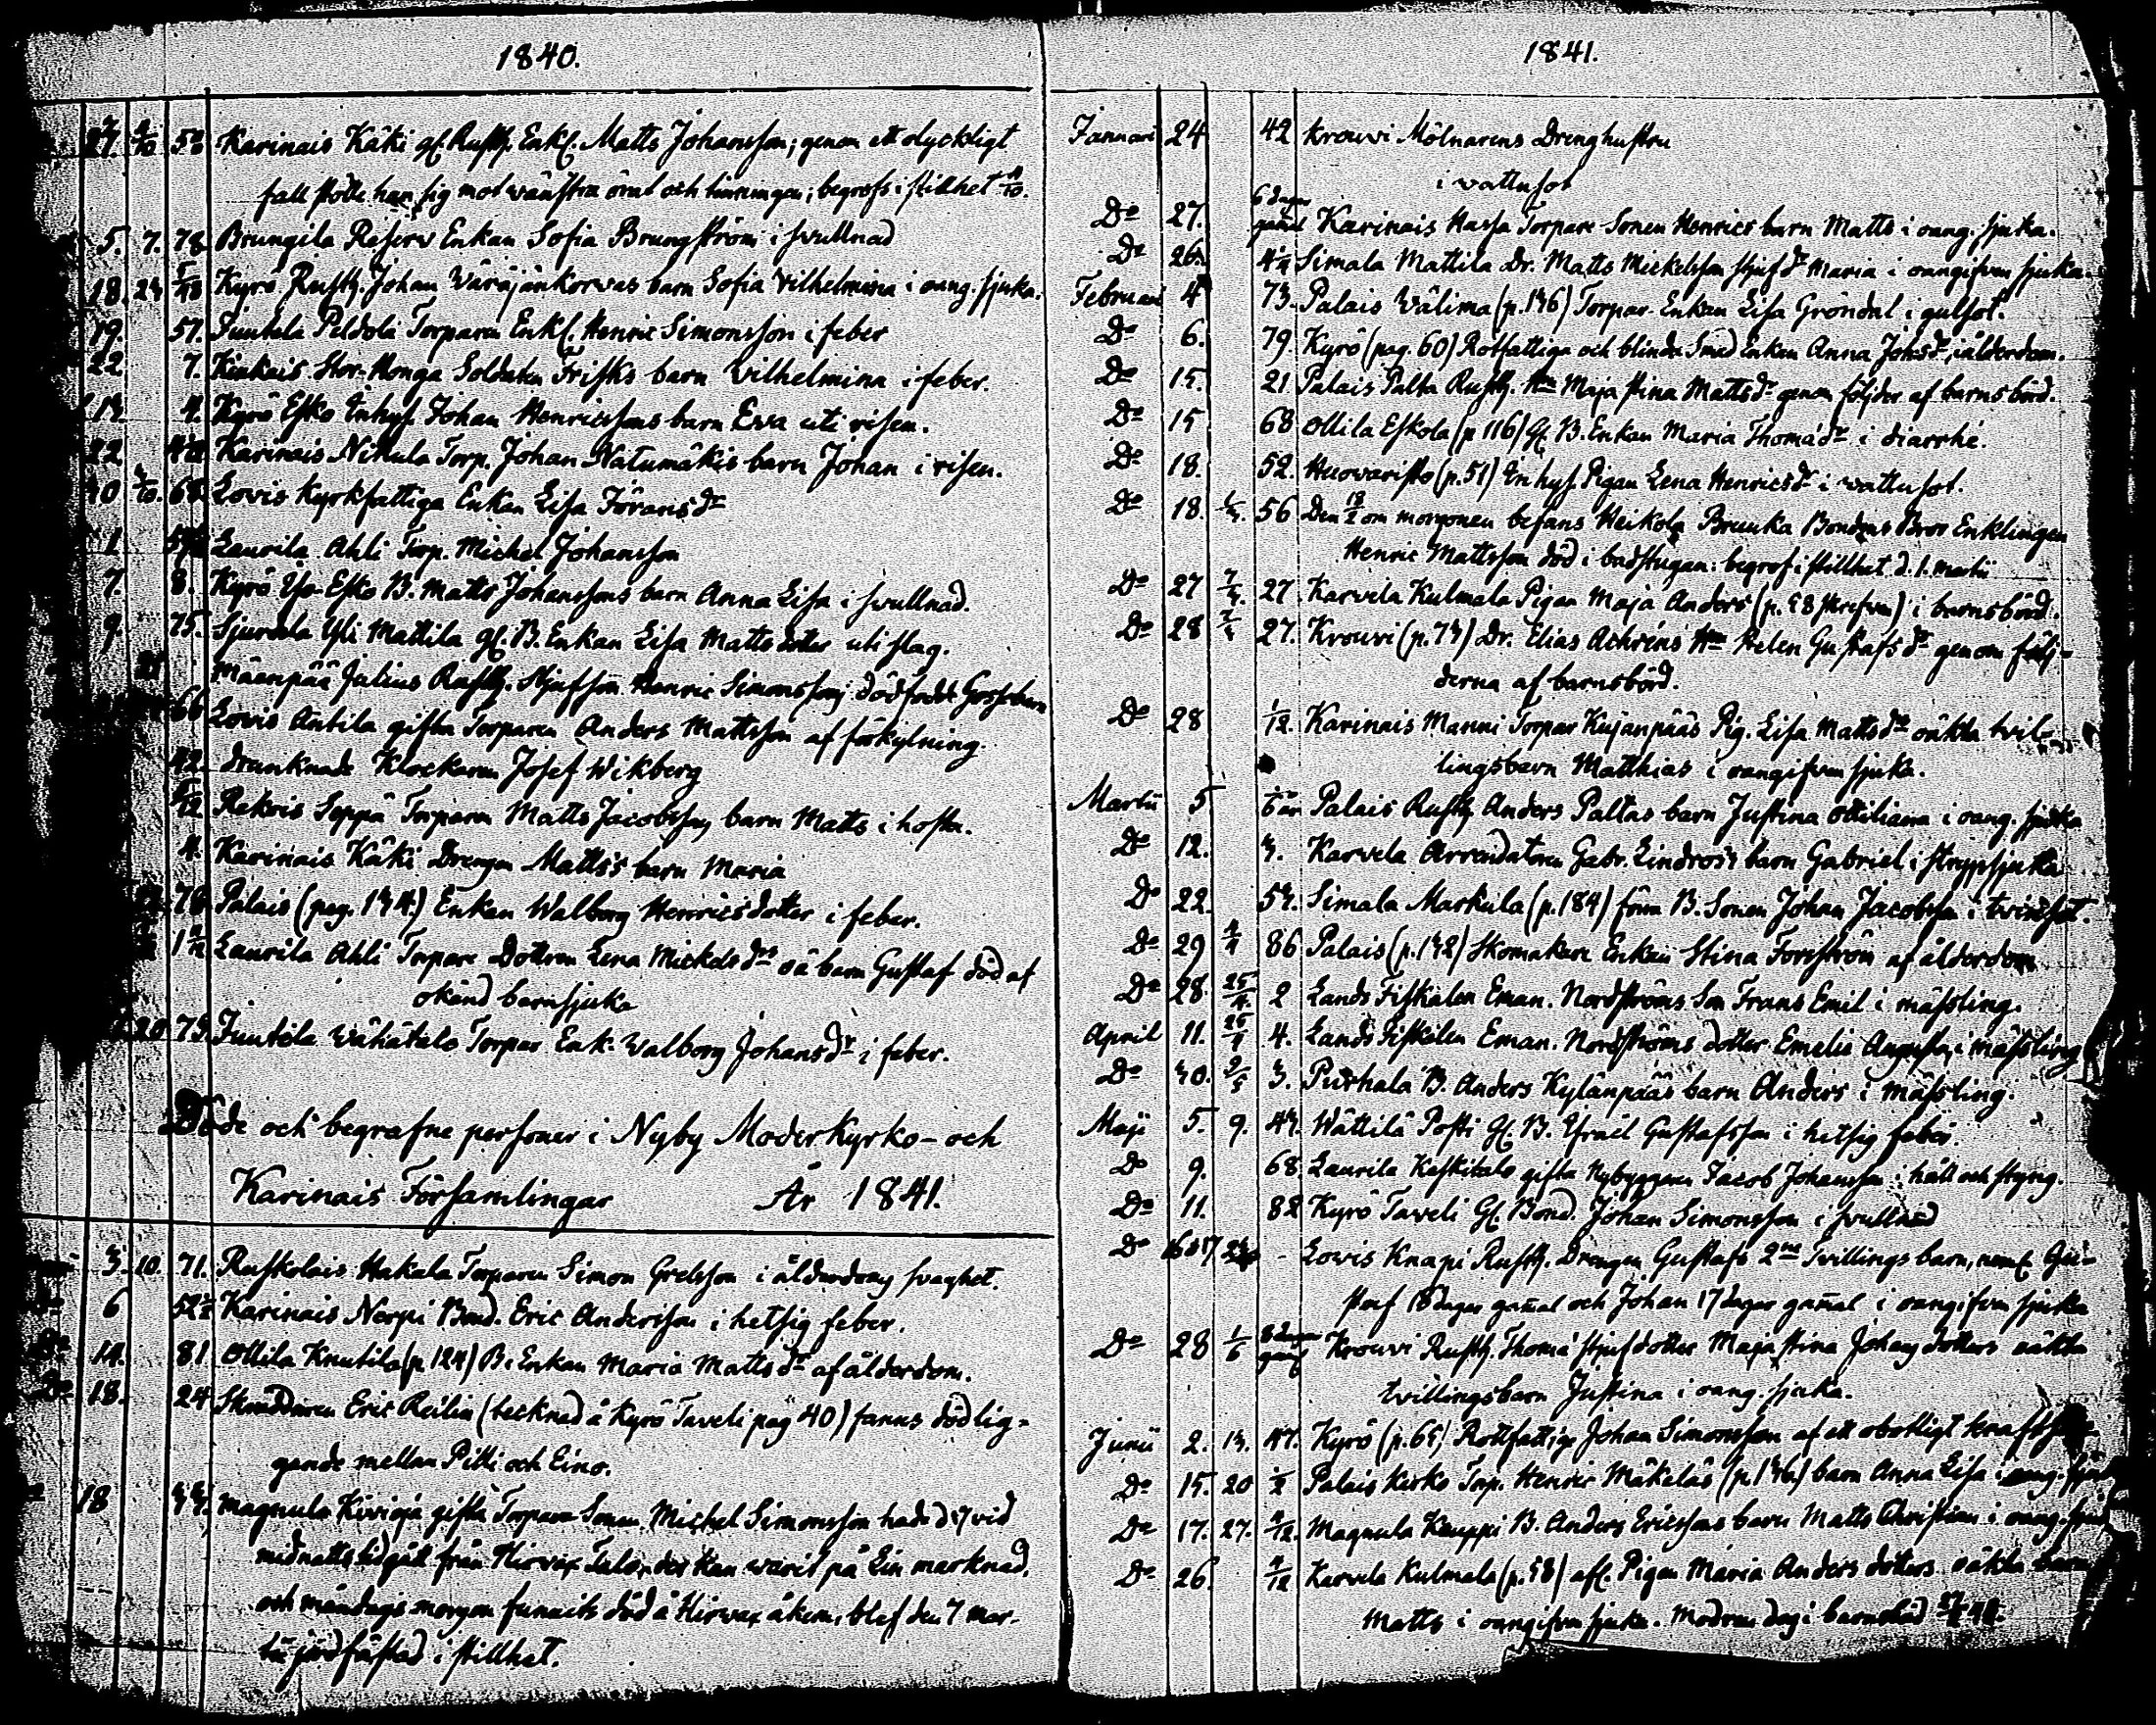 1840.
27. 4/10 50 Karinais Käki gf. Rusth. Enkl. Matts Johansson; genom ett olyckligt
fall stötte han sig mot wänstra örat och tinningen; begrofs i stillhet 4/10.
5. 7. 78 Brungila Reserv Enkan Sofia Brungström i svullnad
18. Kyrö Rusth. Johan Wäräjänkorwas barn Sofia Vilhelmina i oang. sjuka.
19. 57. Juntela Peldola Torparen Enkl. Henric Simonsson i feber
22 7. Kiukais Stor-Monga Soldaten Frisks barn Vilhelmina i feber.
4. Kyrö Esko Inhys. Johan Henricssons barn Ewa uti risen.
22 Karinais Nikula Torp. Johan Natumäkis barn Johan i risen.
68. Lovis Kyrkfattiga Enkan Lisa Förarisdr
1. Laurila Ahli Torp. Michel Johansson
7. 8. Kyrö Yso-Esko B. Matts Johanssons barn Anna Lisa i svullnad.
9. 75. Sjurdla Yli Mattila gf. B. Enkan Lisa Matts dotter uti slag.
Mäenpää Julius Rusth. Styfson Henric Simonssons dödfödt Gossebarn
66 Lovis Antila gifta Torparen Anders Mattsson af förkylning.
42 drunknade Klockaren Josef Wikberg
/12 Rekois Seppä Torparen Matts Jacobssons barn Matts i hosta.
4. Karinais Käki Drengen Matts's barn Maria
Palais (pag. 134.) Enkan Walborg Henricsdotter i feber.
Laurila Ahli Torpare Dottren Lena Mickelsdrs oä barn Gustaf död af
okänd barnsjuka
20 73. Juntela Wähätalo Torpar Enk. Walborg Johansdr i feber.
Döde och begrafne personer i Nyby Moderkyrko- och
Karinais Församlingar År 1841.
3. 10. 71. Ruskolais Hakala Torparen Simon Grelsson i ålderdoms svaghet.
6 52½ Karinais Norpi Bond. Eric Andersson i hetsig feber.
14. 81. Ollila Knutila (p 124) B. Enkan Maria Mattsdr af ålderdom.
Do 18. 24 Skräddaren Eric Reilin (tecknad å Kyrö Taveli pag 40) fanns död lig-
gande mellan Pitti och Eino.
18 33. Magnula Kivioja gifta Torpare Sonen Michel Simonsson hade d 17 vid
midnatts tid gått från Hirvax Talo, der han warit på Lin marknad,
och måndags morgon funnits död å Hirvax åkern, blef den 7 mar-
tii jordfästad i stillhet.
1841.
Januari 24 42 Krouvi Mölnarens Drenghustru
i vattusot
Do 27. 6 dagar gamal Karinais Hassa Torpare Sonen Henrics barn Matts i oang. sjuka.
Do 26. Simala Mattila Dr. Matts Mickelsson styfdr Maria i oangifven sjuka.
Februari 4 73. Palais Wälima (p. 136) Torpar-Enkan Lisa Gröndal i gulsot.
Do 6. 79. Kyrö (pag. 60) Rotfattiga och blinda Smed Enkan Anna Johsdr, i ålderdom.
Do 15. 21 Palais Palta Rusth. Hu Maja Stina Mattsdr genom följder af barnsbörd.
Do 15 68 Ollila Eskola (p 116) Gl. B. Enkan Maria Thomædr i diarrhé.
Do 18. 52. Huovaristo (p. 51) Inhys. Pigan Lena Henricsdr i vattusot.
Do 18. 1/3. 56 Den 18/2 om morgonen befans Heikola Bruuka Bondens Bror Enklingen
Henric Mattsson död i badstugan: begrof i stillhet d. 1. martii
Do 27 7/3. 27. Karvela Kulmala Pigan Maja Anders (p. 58 skrefven) i barnsbörd.
Do 28 7/3 27. Krouvi (p. 73) Dr. Elias Achréns Hu Helen Gustafsdr genom följ-
derna af barnsbörd.
Do 28 1/12. Karinais Manni Torpar Kujanpääs Pig. Lisa Mattsdrs oäkta tvil-
lingsbarn Matthias i oangifven sjuka.
Martii 5 Palais Rusth Anders Paltas barn Justina Ottiliana i oang. sjuka
Do 12. 3. Karvela Arrendatoren Gabr. Lindroos's barn Gabriel i strypsjuka
Do 22. 53. Simala Markula (p. 184) förra B. Sonen Johan Jacobsson i tvinsot.
Do 29 4/4 86 Palais (p. 132) Skomakare Enkan Stina Forsström af ålderdom
Do 28. 25/4. 2 Lands Fiskalen Eman. Nordströms Son Frans Emil i mässling.
April 11. 25/4 4. Lands Fiskalen Eman. Nordströms dotter Emelie Augusta, i mässling
Do 30. 2/5 3. Purhala B. Anders Kylänpääs barn Anders i mässling.
Maji 5. 9. 43. Wättilä Posti Gl. B. Israel Gustafsson i hetsig feber.
Do 9. 68 Laurila Keskitalo gifta Nybyggaren Jacob Johansson: håll och styng.
Do 11. 82 Kyrö Taveli Gl. Bond. Johan Simonsson i svullnad
Do 16 o 17 - Lowis Knapi Rusth. Drengen Gustafs 2ne Tvillings barn, neml. Gu-
staf 18 dagar gamal och Johan 17 dagar gamal i oangifven sjuka
Do 28 1/6 8 dagar gaml Krouvi Rusth. Thomæ styfdotter Maja Stina Johans dotters oäkta
tvillingsbarn Justina i oang. sjuka.
Junii 2. 13. 47. Kyrö (p. 65) Rottfattige Johan Simonsson af ett obotligt
Do 15. 20 ½ Palais Kirko Torp. Henric Mäkeläs (p. 136) barn Anna Lisa i oang. sjuk
Do 17. 27. Magnula Kauppi B. Anders Ericssons barn Matts Christian i oang. sjuk
Do 26. Karvela Kulmala (p. 58) afl. Pigan Maria Anders dotters oäkta barn
Matts i oangifven sjuka. Modren dog i barnsbörd